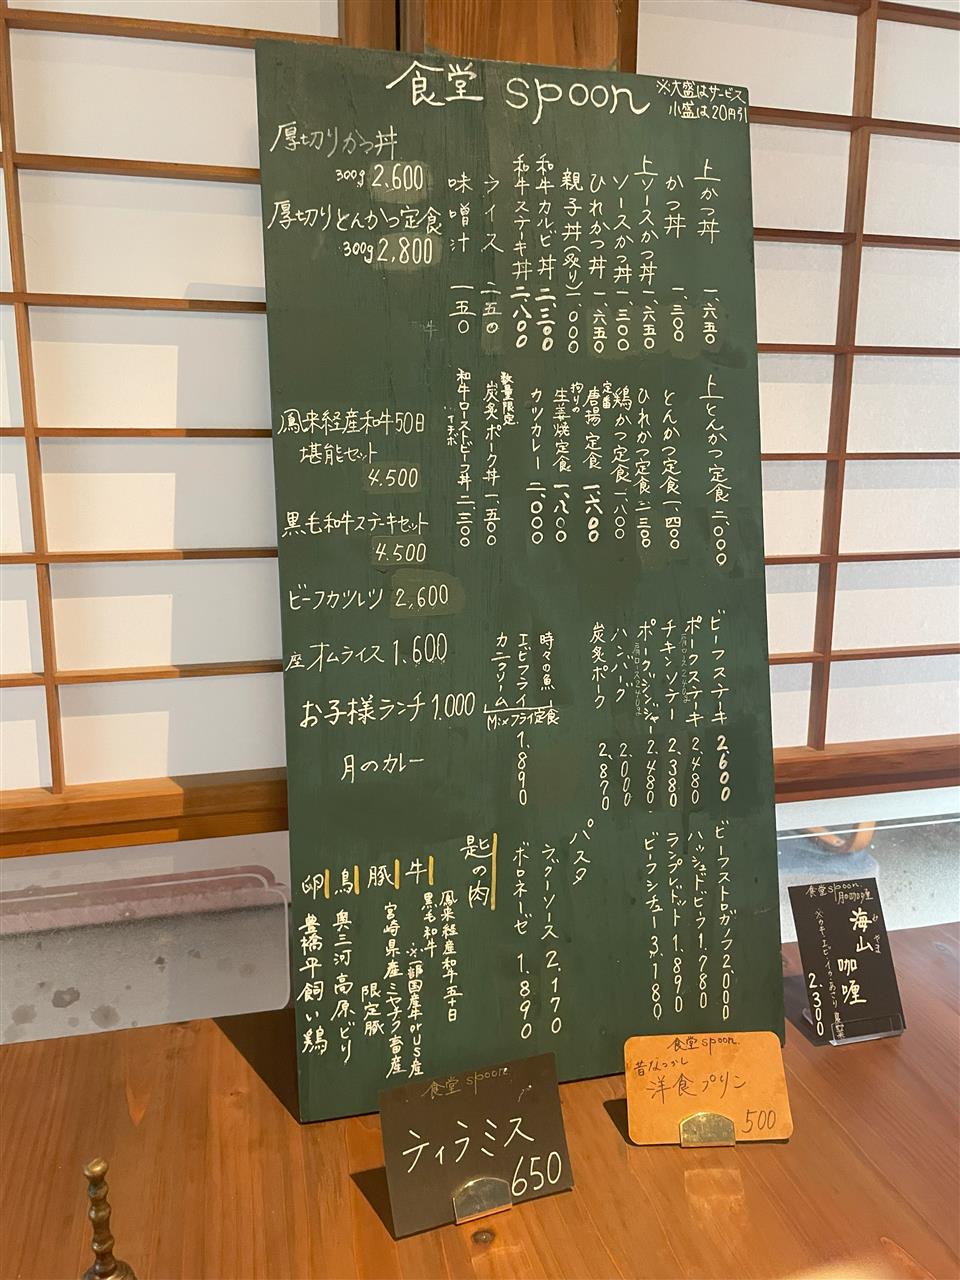 食堂 spoon
※大盛はサービス
小盛は20円引
上かつ丼 一、六五〇
かつ丼 一、三〇〇
上ソースかつ丼 一、六五〇
ソースかつ丼 一、三〇〇
ひれかつ丼 一、六五〇
親子丼(炙り) 一、〇〇〇
和牛カルビ丼 二、三〇〇
和牛ステーキ丼 二、八〇〇
ライス 二五〇
味噌汁 一五〇
厚切りかつ丼
300g 2,600
厚切りとんかつ定食
300g 2,800
上とんかつ定食 二、〇〇〇
とんかつ定食 一、四〇〇
ひれかつ定食 二、三〇〇
鶏かつ定食 一、八〇〇
定番 唐揚定食 一、六〇〇
拘りの 生姜焼定食 一、八〇〇
カツカレー 二、〇〇〇
数量限定
炭炙ポーク丼 一、五〇〇
和牛ローストビーフ丼 二、三〇〇
イチボ
鳳来経産和牛50日
堪能セット
4.500
黒毛和牛ステーキセット
4.500
ビーフカツレツ 2,600
オムライス 1.600
お子様ランチ 1.000
月のカレー
ビーフステーキ 2.600
ポークステーキ 2.480
チキンソテー 2.380
ポークジンジャー 2.480
肩ロース240g
ハンバーグ 2.000
炭炙ポーク 2.870
時々の魚
エビフライ
カニクリーム
Mixフライ定食
1.890
ビーフストロガノフ 2.000
ハッシュドビーフ 1.780
ランプレドット 1.890
ビーフシチュー 3.180
パスタ
ラグーソース 2.170
ボロネーゼ 1.890
匙の肉
牛
鳳来経産和牛五十日
黒毛和牛
※一部国産牛orUS産
豚
宮崎県産ミヤチク畜産
限定豚
鳥
奥三河高原どり
卵
豊橋平飼い鶏
食堂spoon
海山咖喱
みやま
2.300
食堂spoon.
昔なつかし
洋食プリン
500
食堂spoon.
ティラミス
650